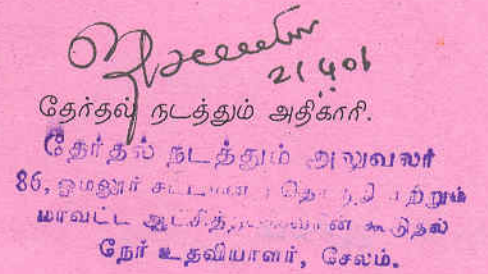 21.4.01
தேர்தல் நடத்தும் அதிகாரி.
தேர்தல் நடத்தும் அலுவலர்
86, ஓமலூர் சட்டமன்ற தொகுதி மற்றும்
மாவட்ட ஆட்சித்தலைவரின் கூடுதல்
நேர் உதவியாளர், சேலம்.